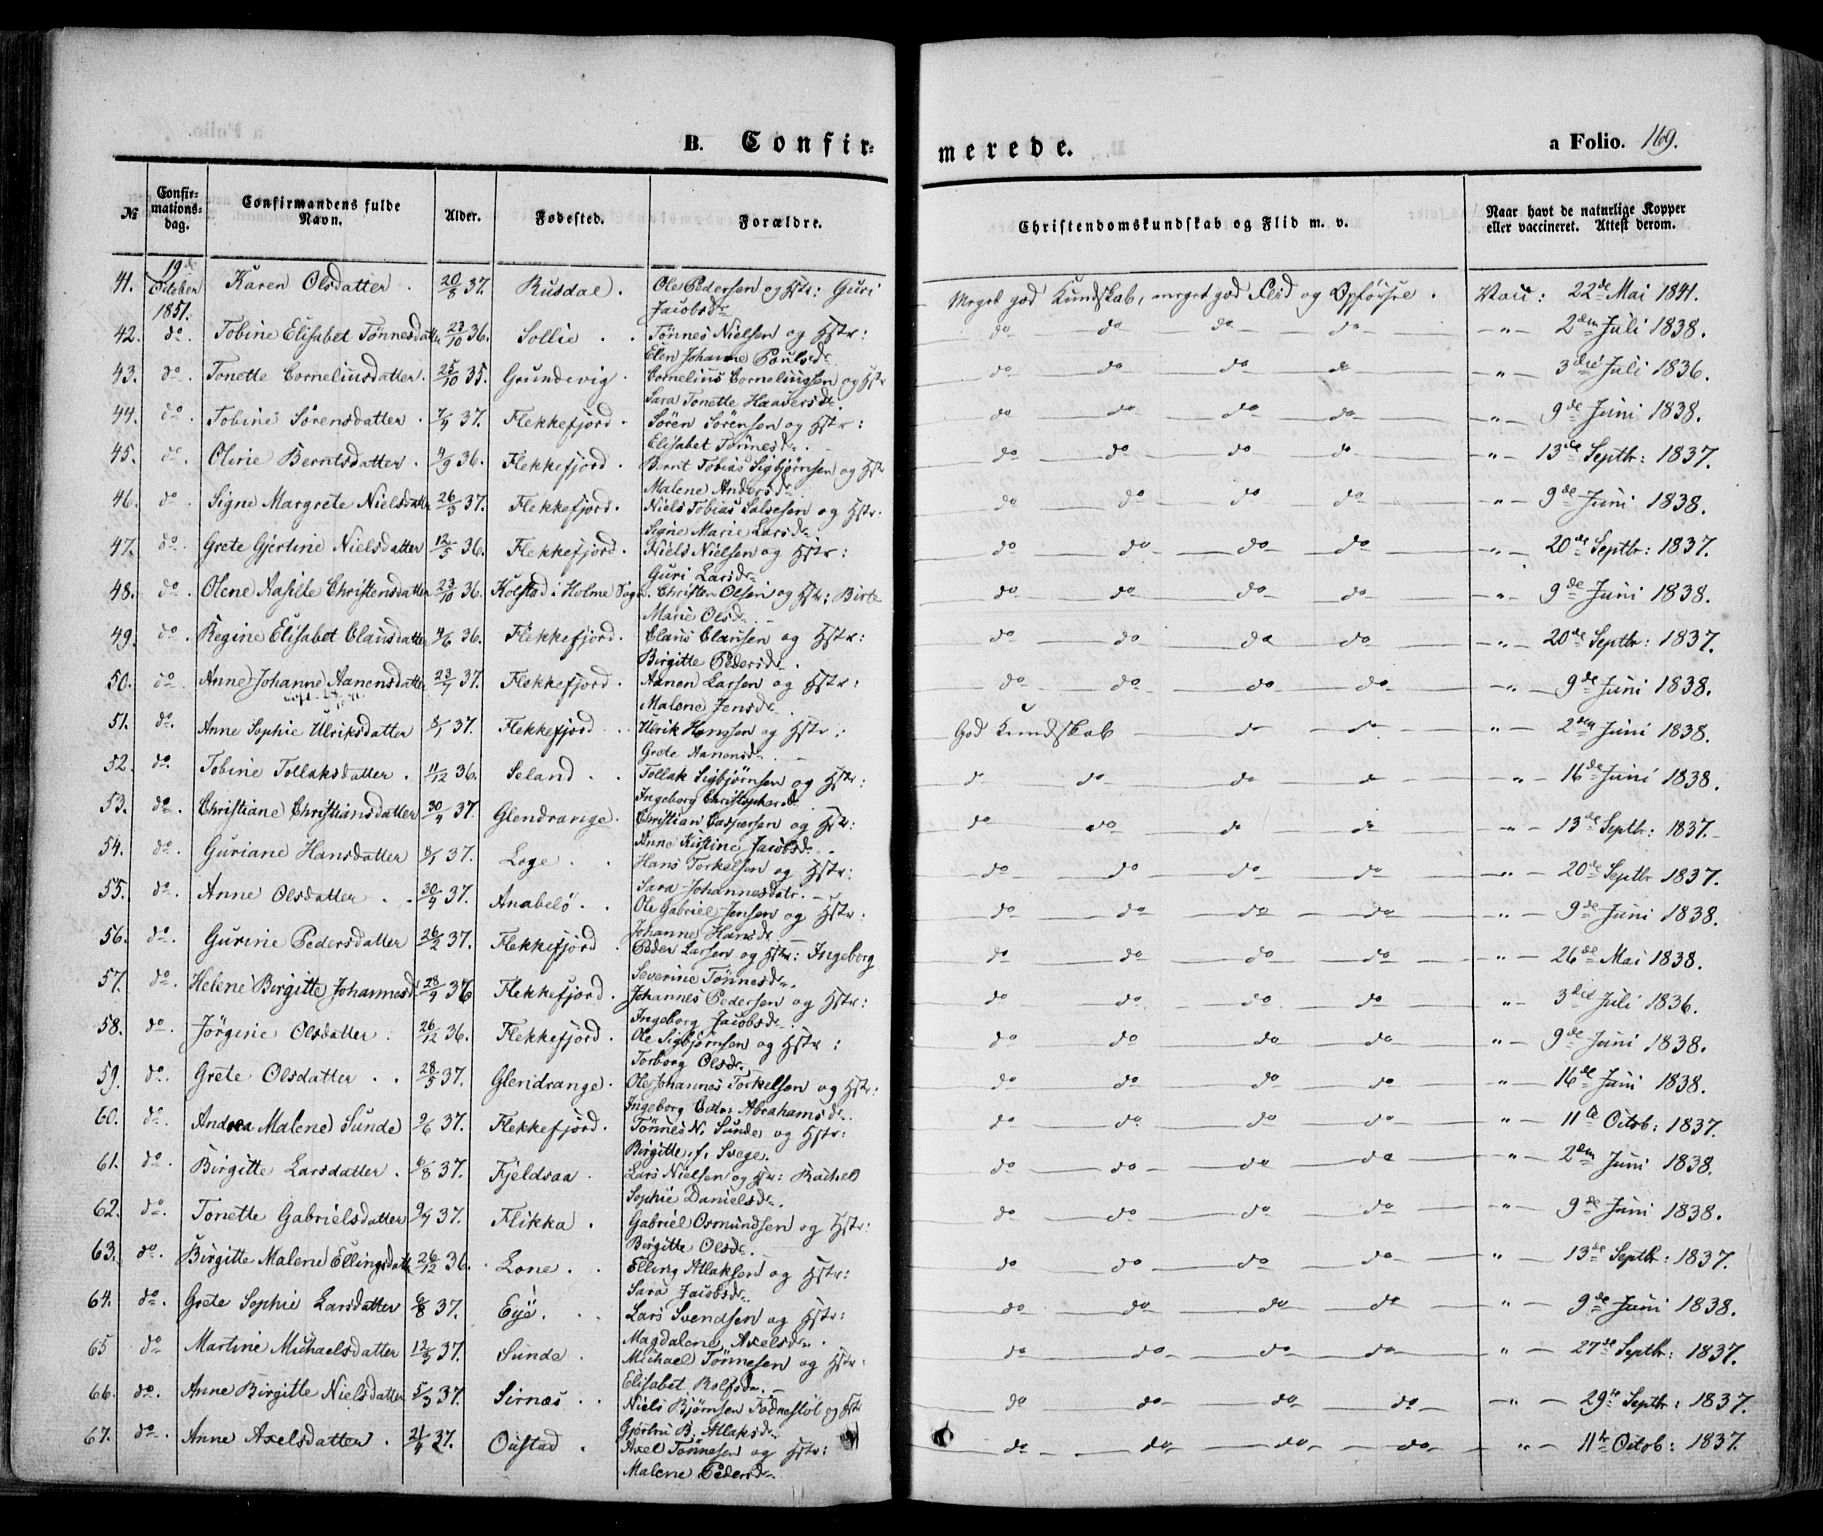 B. Confirmerede. a Folio. 169.
№ | Confirmationsdag. | Confirmandens fulde Navn. | Alder. | Fødested. | Forældre. | Christendomskundskab og Flid m. v. | Naar havt de naturlige Kopper eller vaccineret. Attest derom.
41. 19de October 1851. Karen Olsdatter. 20/8 37. Rusdal. Ole Pedersen og Hstr: Guri Jacobsdr. Meget god Kundskab, meget god Flid og Opførsel. Vacc: 22de Mai 1841.
42. do. Tobine Elisabet Tønnesdatter 23/10 36. Sollie. Tønnes Nielsen og Hstr: Elen Johanne Poulsdr. do do do do " 2den Juli 1838.
43. do. Tonette Corneliusdatter. 25/10 35. Grundevig. Cornelius Corneliussen og Hstr Sara Tonette Haaversdr. do do do do " 3die Juli 1836.
44. do. Tobine Sørensdatter. 7/4 37. Flekkefjord. Søren Sørensen og Hstr: Elisabet Tønnesdr. do do do do " 9de Juni 1838.
45. do. Oline Berntsdatter. 4/9 36. Flekkefjord. Bernt Tobias Sigbjørnsen og Hstr Malene Andersdr. do do do do " 13de Septbr: 1837.
46. do. Signe Margrete Nielsdatter 26/3 37. Flekkefjord. Niels Tobias Salvesen og Hstr: Signe Marie Larsdr. do do do do " 9de Juni 1838.
47. do. Grete Gjertine Nielsdatter 12/5 36. Flekkefjord. Niels Nielsen og Hstr: Guri Larsdr. do do do do " 20de Septbr: 1837.
48. do. Olene Aasille Christensdatter 23/10 36. Kolstad i Holme Sogn. Christen Olsen og Hstr: Birte Marie Olsdr. do do do do " 9de Juni 1838.
49. do. Regine Elisabet Clausdatter 4/6 36. Flekkefjord. Claus Clausen og Hstr: Birgitte Pedersdr. do do do do " 20de Septbr: 1837.
50. do. Anne Johanne Aanensdatter 23/4 37. Flekkefjord. Aanen Larsen og Hstr: Malene Jensdr. do do do do " 9de Juni 1838.
51. do. Anne Sophie Ulriksdatter 8/1 37. Flekkefjord. Ulrik Hanssen og Hstr: Grete Aanensdr. God Kundskab do do " 2den Juni 1838.
52. do. Tobine Tollaksdatter. 11/12 36. Seland. Tollak Sigbjørnsen og Hstr: Ingeborg Christophersdr. do do do do " 16de Juni 1838.
53. do. Christiane Christiansdatter 30/4 37. Glendrange. Christian Caspersen og Hstr: Anne Kistine Jacobsdr. do do do do " 13de Septbr: 1837.
54. do. Guriane Hansdatter 8/1 37. Loge. Hans Torkelsen og Hstr: Sara Johannesdatr. do do do do " 20de Septbr 1837.
55. do. Anne Olsdatter. 30/4 37. Anabelø. Ole Gabriel Jensen og Hstr: Johanne Hansdr. do do do do " 9de Juni 1838.
56. do. Gurine Pedersdatter 26/2 37. Flekkefjord. Peder Larsen og Hstr: Ingeborg Severine Tønnesdr. do do do do " 26de Mai 1838.
57. do. Helene Birgitte Johannesd. 28/9 36 Flekkefjord. Johannes Pedersen og Hstr: Ingeborg Jacobsdr. do do do do " 3die Juli 1836.
58. do. Jørgine Olsdatter. 26/12 36. Flekkefjord. Ole Sigbjørnsen og Hstr: Torborg Olsdr. do do do do " 9de Juni 1838.
59. do. Grete Olsdatter. 28/5 37. Glendrange. Ole Johannes Torkelsen og Hstr: Ingeborg Abrahamsdr. do do do do " 16de Juni 1838.
60. do. Andrea Malene Sunde 9/6 37. Flekkefjord. Tønnes N. Sunde og Hstr: Birgitte f. Svege. do do do do " 11te Octob: 1837.
61. do. Birgitte Larsdatter. 6/8 37. Fjeldsaa. Lars Nielsen og Hstr: Rachel Sophie Danielsdr. do do do do " 2den Juni 1838.
62. do. Tonette Gabrielsdatter 9/4 37. Flikka. Gabriel Osmundsen og Hstr: Birgitte Olsdr. do do do do " 9de Juni 1838.
63. do. Birgitte Malene Ellingsdatter 26/12 36. Lone. Elling Atlaksen og Hstr: Sara Jacobsdr. do do do do " 13de Septbr: 1837.
64. do. Grete Sophie Larsdatter 6/8 37. Eye. Lars Svendsen og Hstr: Magdalene Axelsdr. do do do do " 9de Juni 1838.
65 do Martine Michaelsdatter 12/3 37. Sunde. Michael Tønnesen og Hstr: Elisabet Rolfsdr. do do do do " 27de Septbr: 1837.
66. do. Anne Birgitte Nielsdatter 5/3 37. Sirnæs. Niels Bjørnsen Fodnestøl og Hstr Gjertru B. Atlaksdr. do do do do " 29de Septbr: 1837.
67. do. Anne Axelsdatter. 21/4 37. Oustad. Axel Tønnesen og Hstr: Malene Pedersdr. do do do do " 11te Octob: 1837.